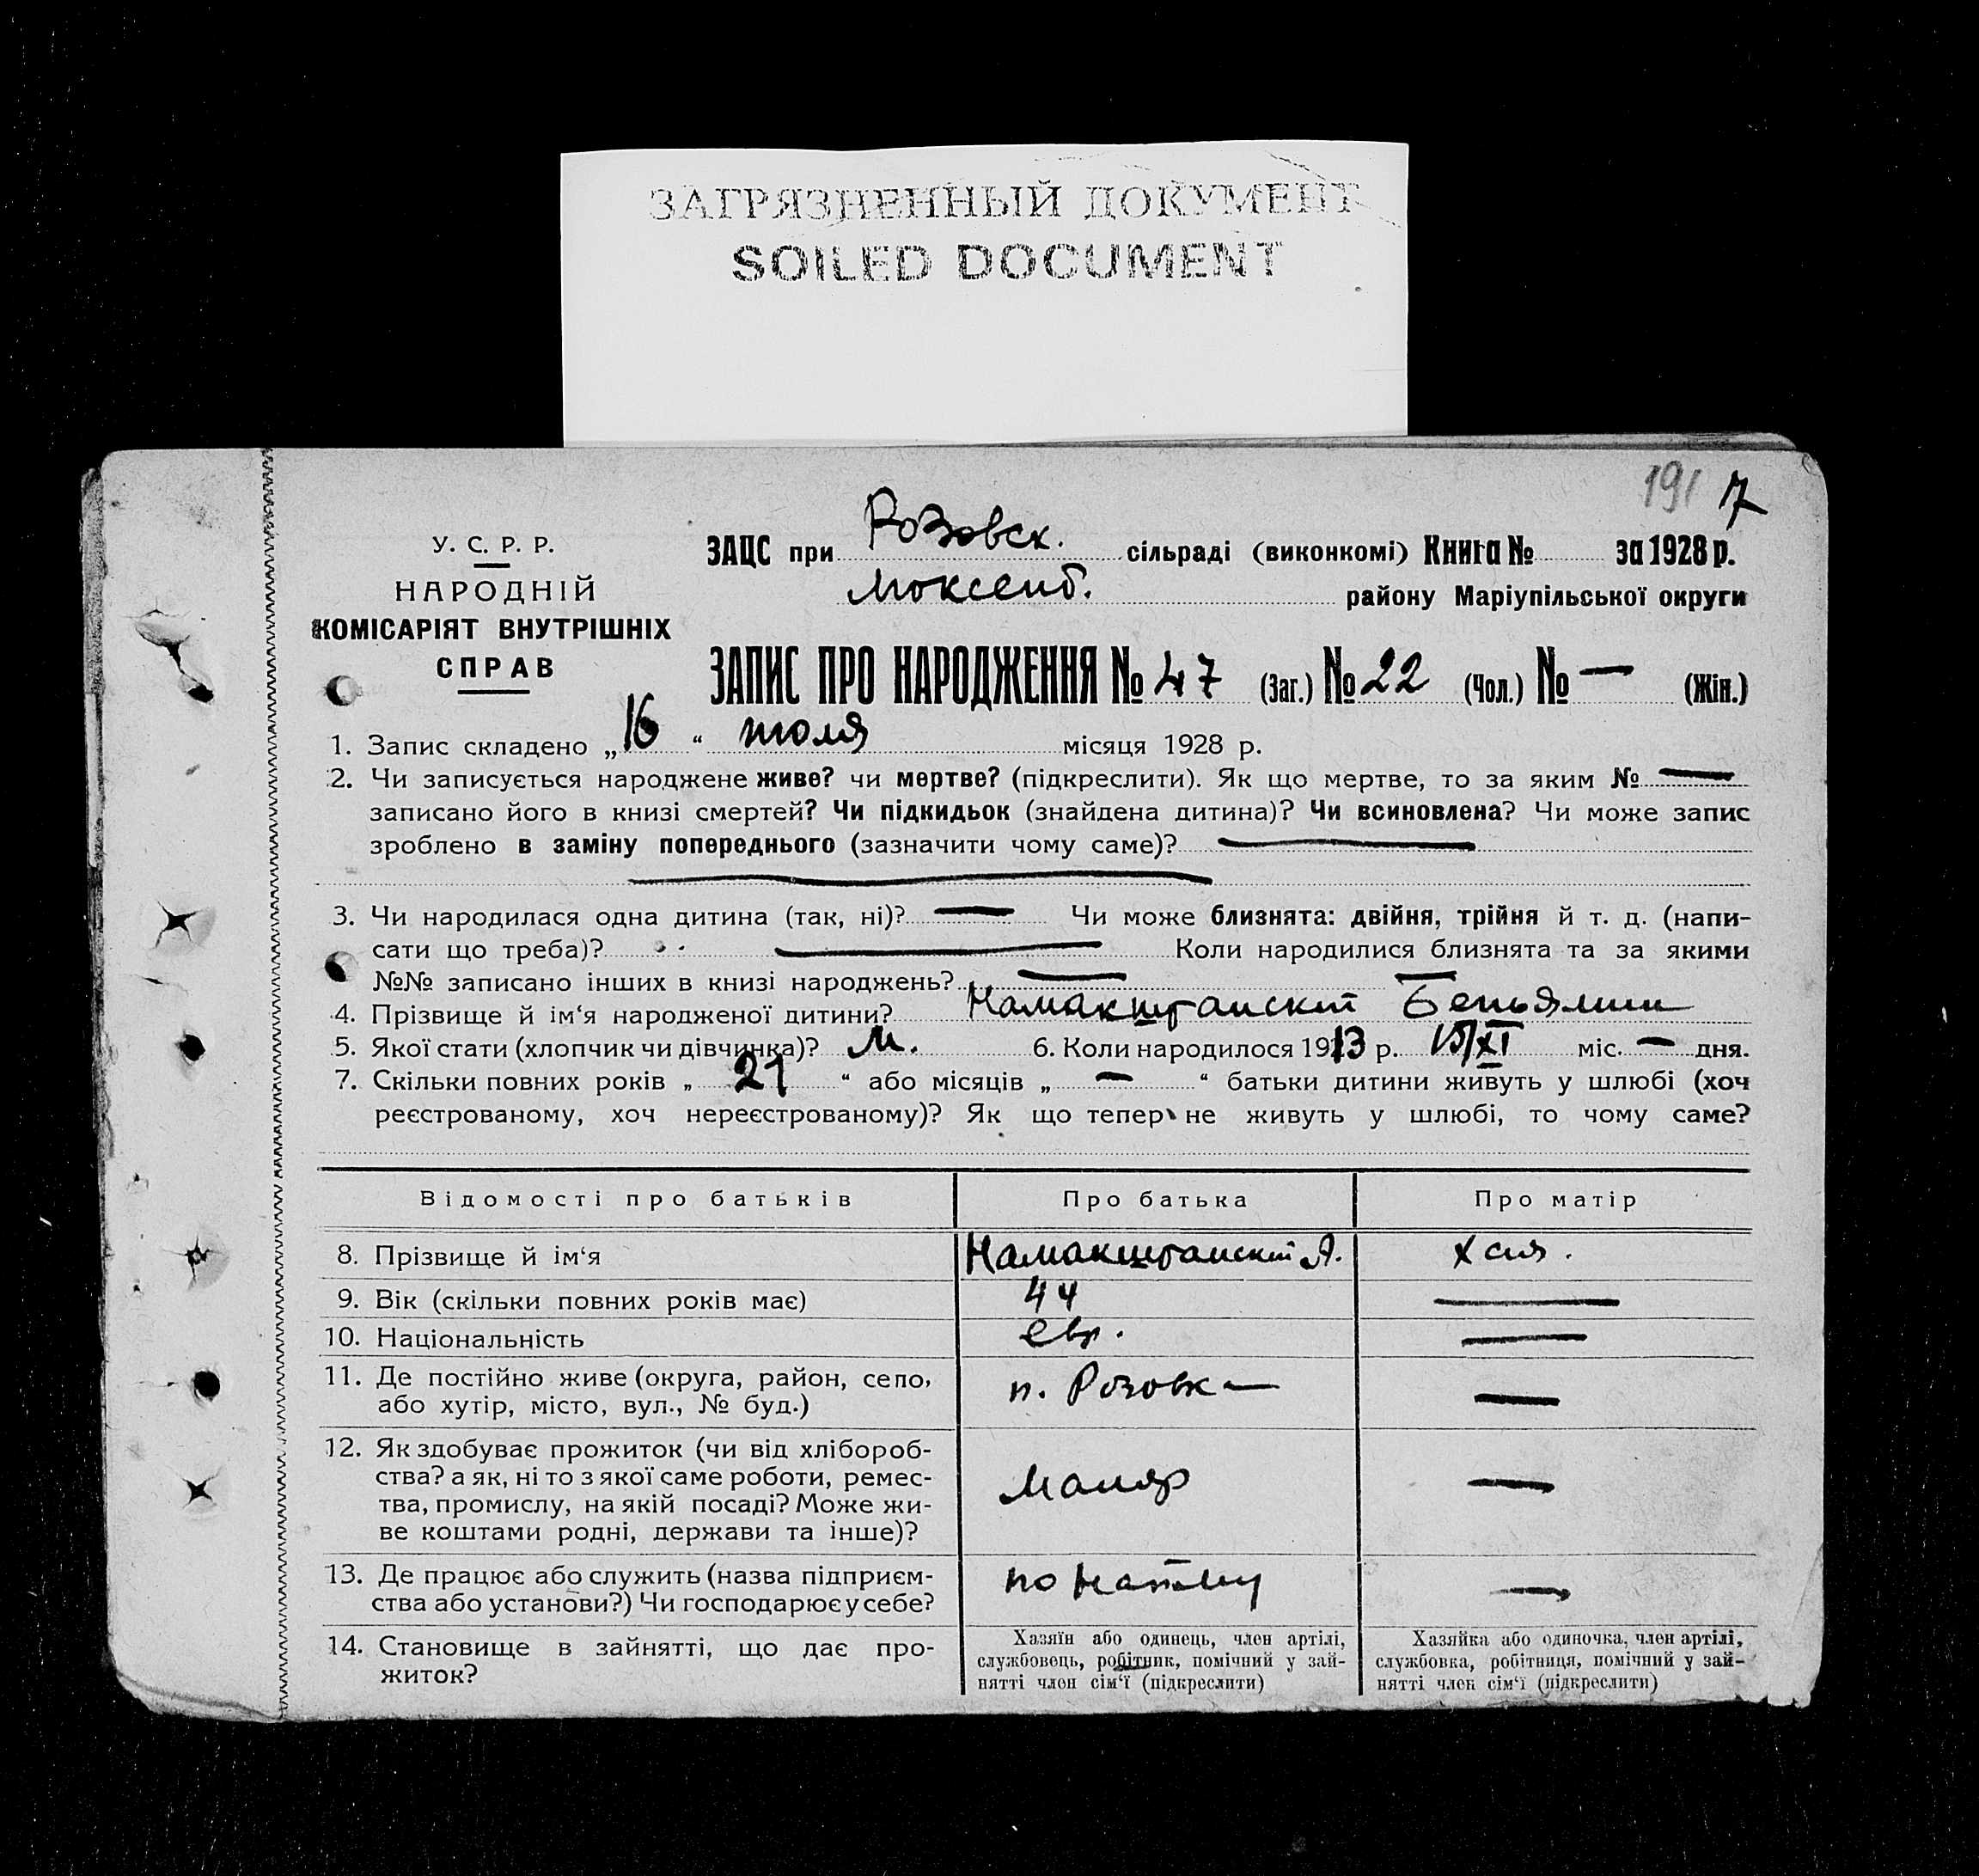 ЗАГРЯЗНЕННЫЙ ДОКУМЕНТ
SOILED DOCUMENT
191 7
У. С. Р. Р.
НАРОДНІЙ
КОМІСАРІЯТ ВНУТРІШНІХ
СПРАВ
ЗАЦС при Розовск. сільраді (виконкомі) Книга № за 1928 р.
району Маріупільської округи
ЗАПИС ПРО НАРОДЖЕННЯ № 47 (Заг.) № 22 (Чол.) № — (Жін.)
1. Запис складено „16“ июля місяця 1928 р.
2. Чи записується народжене живе? чи мертве? (підкреслити). Як що мертве, то за яким № —
записано його в книзі смертей? Чи підкидьок (знайдена дитина)? Чи всиновлена? Чи може запис
зроблено в заміну попереднього (зазначити чому саме)? —
3. Чи народилася одна дитина (так, ні)? — Чи може близнята: двійня, трійня й т. д. (напи-
сати що треба)? — Коли народилися близнята та за якими
№№ записано інших в книзі народжень? —
4. Прізвище й ім‘я народженої дитини? Намакштанский Беньямин
5. Якої стати (хлопчик чи дівчинка)? М. 6. Коли народилося 1913 р. 15/XI міс. — дня.
7. Скільки повних років „21“ або місяців „—“ батьки дитини живуть у шлюбі (хоч
реєстрованому, хоч нереєстрованому)? Як що тепер не живуть у шлюбі, то чому саме?
Відомості про батьків Про батька Про матір
8. Прізвище й ім‘я Намакштанский А. Хая.
9. Вік (скільки повних років має) 44 —
10. Національність евр. —
11. Де постійно живе (округа, район, село,
або хутір, місто, вул., № буд.) п. Розовка —
12. Як здобуває прожиток (чи від хлібороб-
ства? а як, ні то з якої саме роботи, ремес-
тва, промислу, на якій посаді? Може жи-
ве коштами родні, держави та інше)? Маляр —
13. Де працює або служить (назва підприєм-
ства або установи?) Чи господарює у себе? по найму —
14. Становище в зайнятті, що дає про-
житок?
Хазяїн або одинець, член артілі,
службовець, робітник, помічний у зай-
нятті член сім‘ї (підкреслити)
Хазяйка або одиночка, член артілі,
службовка, робітниця, помічний у зай-
нятті член сім‘ї (підкреслити)